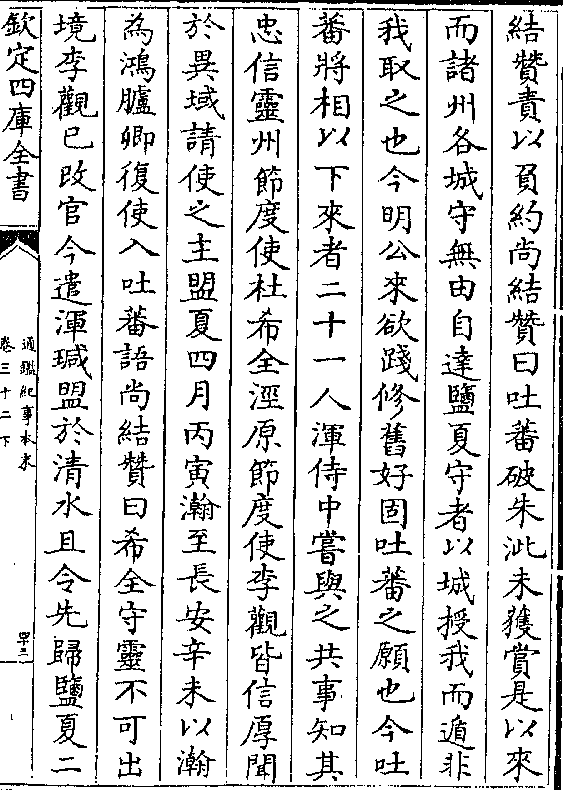 結贊責以負約尚結贊曰吐蕃破朱泚未獲賞是以來
而諸州各城守無由自達鹽夏守者以城授我而遁非
我取之也今明公來欲踐修舊好固吐蕃之願也今吐
蕃將相以下來者二十一人渾侍中嘗與之共事知其
忠信靈州節度使杜希全涇原節度使李觀皆信厚聞
於異域請使之主盟夏四月丙寅瀚至長安辛未以瀚
為鴻臚卿復使入吐蕃語尚結贊曰希全守靈不可出
境李觀已改官今遣渾瑊盟於清水且令先歸鹽夏二
欽定四庫全書
通鑑紀事本末
卷三十二下
四十三